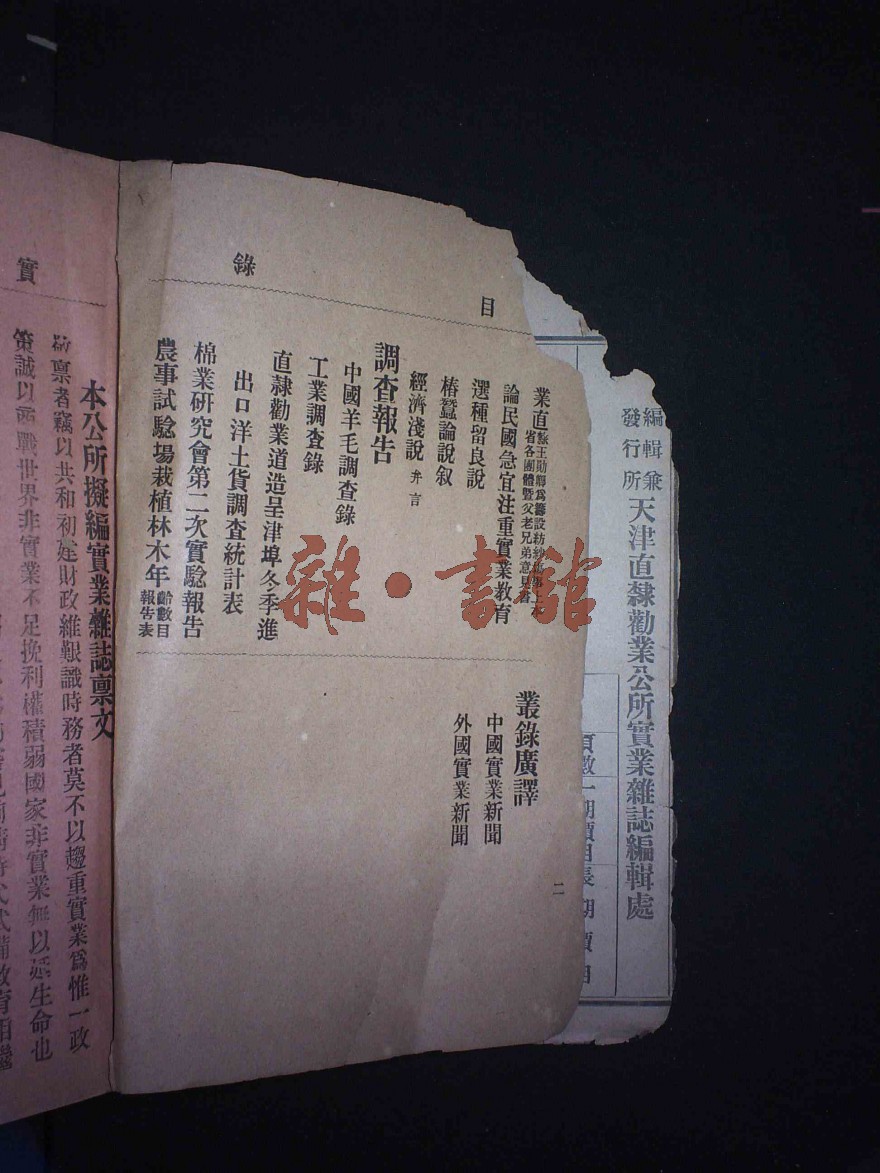 編輯兼
發行所
天津直隸勸業公所實業雜誌編輯處
頁數一期價目長期價目
目
錄
業直
隸王勛卿為籌設紡紗
省各團體暨父老兄弟意見書
論民國急宜注重實業教育
選種留良說
椿蠶論說叙
經濟淺說 弁言
調查報告
中國羊毛調查錄
工業調查錄
直隸勸業道造呈津埠冬季進
出口洋土貨調查統計表
棉業研究會第二次實驗報告
農事試騐場栽植林木年
齡數目
報告表
叢錄廣譯
中國實業新聞
外國實業新聞
二
雜·書館
實
本公所擬編實業雜誌稟文
敬稟者竊以共和初建財政維艱識時務者莫不以趨重實業爲惟一政
策誠以商戰世界非實業不足挽利權積弱國家非實業無以延生命也